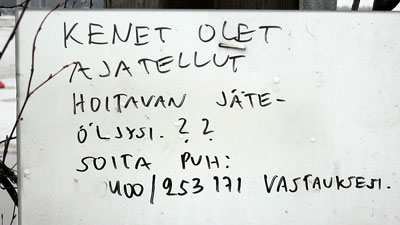 KENET OLET
AJATELLUT
HOITAVAN JÄTE-
ÖLJYSI. ??
SOITA PUH:
400/253171 VASTAUKSESI.